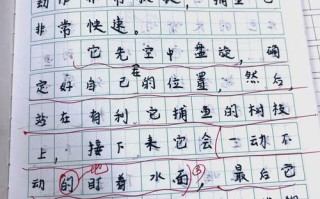 非常快速。
它先空中盘旋，确
在
定好自己的位置，然后
站在有利它捕鱼的树枝
上，接下来它会一动不
地
动的盯着水面，最后它